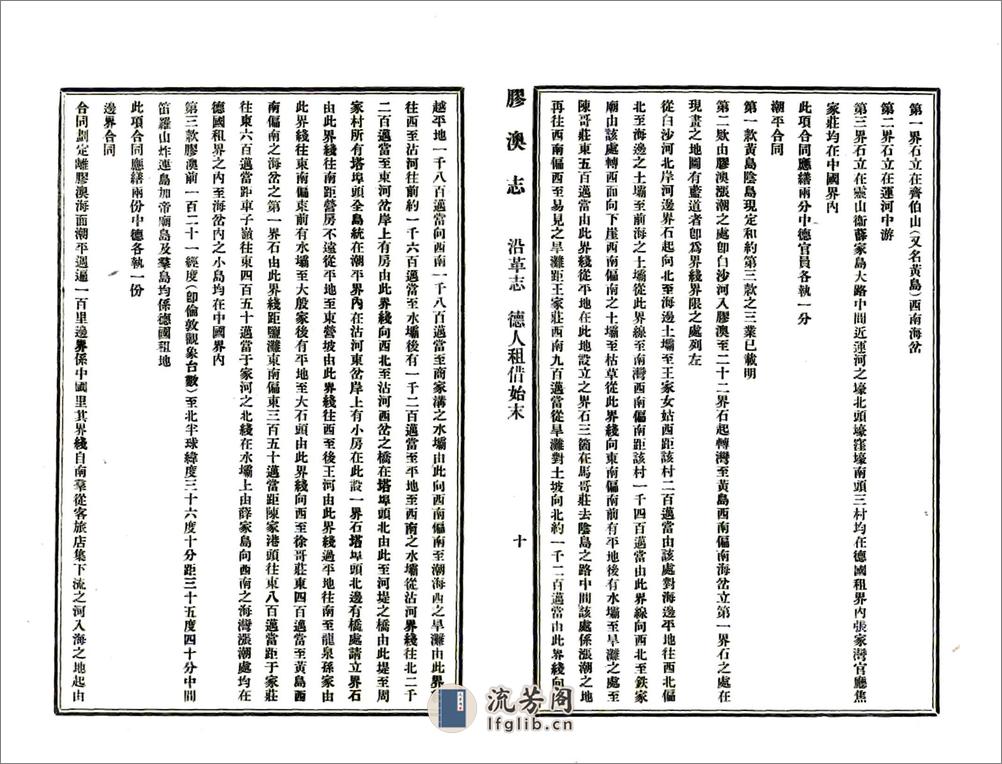 第一界石立在齊伯山(又名黃島)西南海岔
第二界石立在運河中游
第三界石立在靈山衛薛家島大路中間近運河之壕北頭壕窪壕南頭三村均在德國租界內張家灣官廳焦
家莊均在中國界內
此項合同應繕兩分中德官員各執一分
潮平合同
第一款黃島陰島現定和約第三款之三業已載明
第二欵由膠澳漲潮之處卽白沙河入膠澳至二十二界石起轉灣至黃島西南偏南海岔立第一界石之處在
現畫之地圖有藍道者卽爲界綫界限之處列左
從白沙河北岸河邊界石起向北至海邊土壩至王家女姑西距該村二百邁當由該處對海邊平地往西北偏
北至海邊之土壩至前海之土壩從此界線至南灣西南偏南距該村一千四百邁當由此界線向西北至鉄家
廟由該處轉西面向下崖西南偏南之土壩至枯草從此界綫向東南偏南前有平地後有水壩至旱灘之處至
陳哥莊東五百邁當由此界綫從平地在此地設立之界石三箇在馬哥莊去陰島之路中間該處係漲潮之地
再往西南偏西至易見之旱灘距王家莊西南九百邁當從旱灘對土坡向北約一千二百邁當由此界綫向
膠澳志 沿革志 德人租借始末 十
越平地一千八百邁當向西南一千八百邁當至商家溝之水壩由此向西南偏南至潮海西之旱灘由此界
往西至沽河往前約一千六百邁當至水壩後有一千二百邁當至平地至西南之水壩從沽河界綫往北二千
二百邁當至東河岔岸上有房由此界綫向西北至沽河西岔之橋在塔埠頭北由此至河堤之橋由此堤至周
家村所有塔埠頭全島統在潮平界內在沽河東岔岸上有小房在此設一界石塔埠頭北邊有橋處請立界石
由此界綫往南距營房不遠從平地至東營坡由此界綫往西至後王河由此界綫過平地往南至龍泉孫家由
此界綫往東南偏東前有水壩至大殷家後有平地至大石頭由此界綫向西至徐哥莊東四百邁當至黃島西
南偏南之海岔之第一界石由此界綫距鹽灘東南偏東三百五十邁當距陳家港頭往東八百邁當距于家莊
往東六百邁當距車子嶺往東四百五十邁當于家河之北界綫在水壩上由薛家島向西南之海灣漲潮處均在
德國租界之內至海岔內之小島均在中國界內
第三款膠澳前一百二十一經度(卽倫敦觀象台數)至北半球緯度三十六度十分距三十五度四十分中間
笛羅山炸連島加帝廟島及羣島均係德國租地
此項合同應繕兩份中德各執一份
邊界合同
合同劃定離膠澳海面潮平週遍一百里邊界係中國里其界綫自南羣從客旅店集下流之河入海之地起由
流芳阁
lfglib.cn